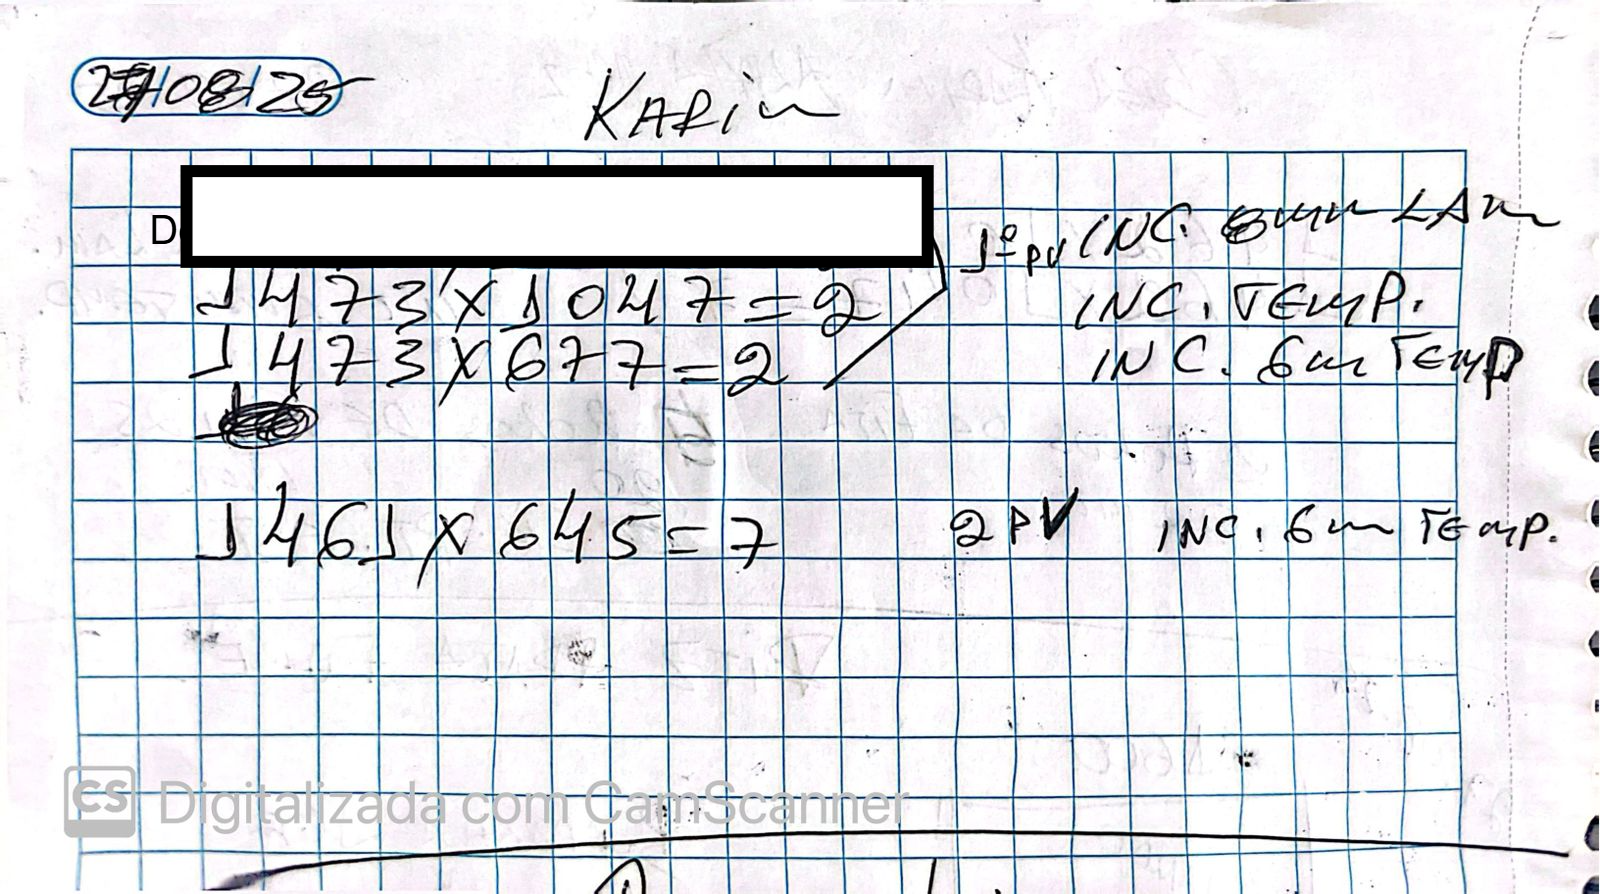 27/08/25
KARin
D
1º PV INC. 8mm LAm
1473 x 1047 = 2 INC. TEMP.
1473 x 677 = 2 INC. 6m TEMP
1461 x 645 = 7 2 PV INC. 6m TEMP.
CS Digitalizada com CamScanner